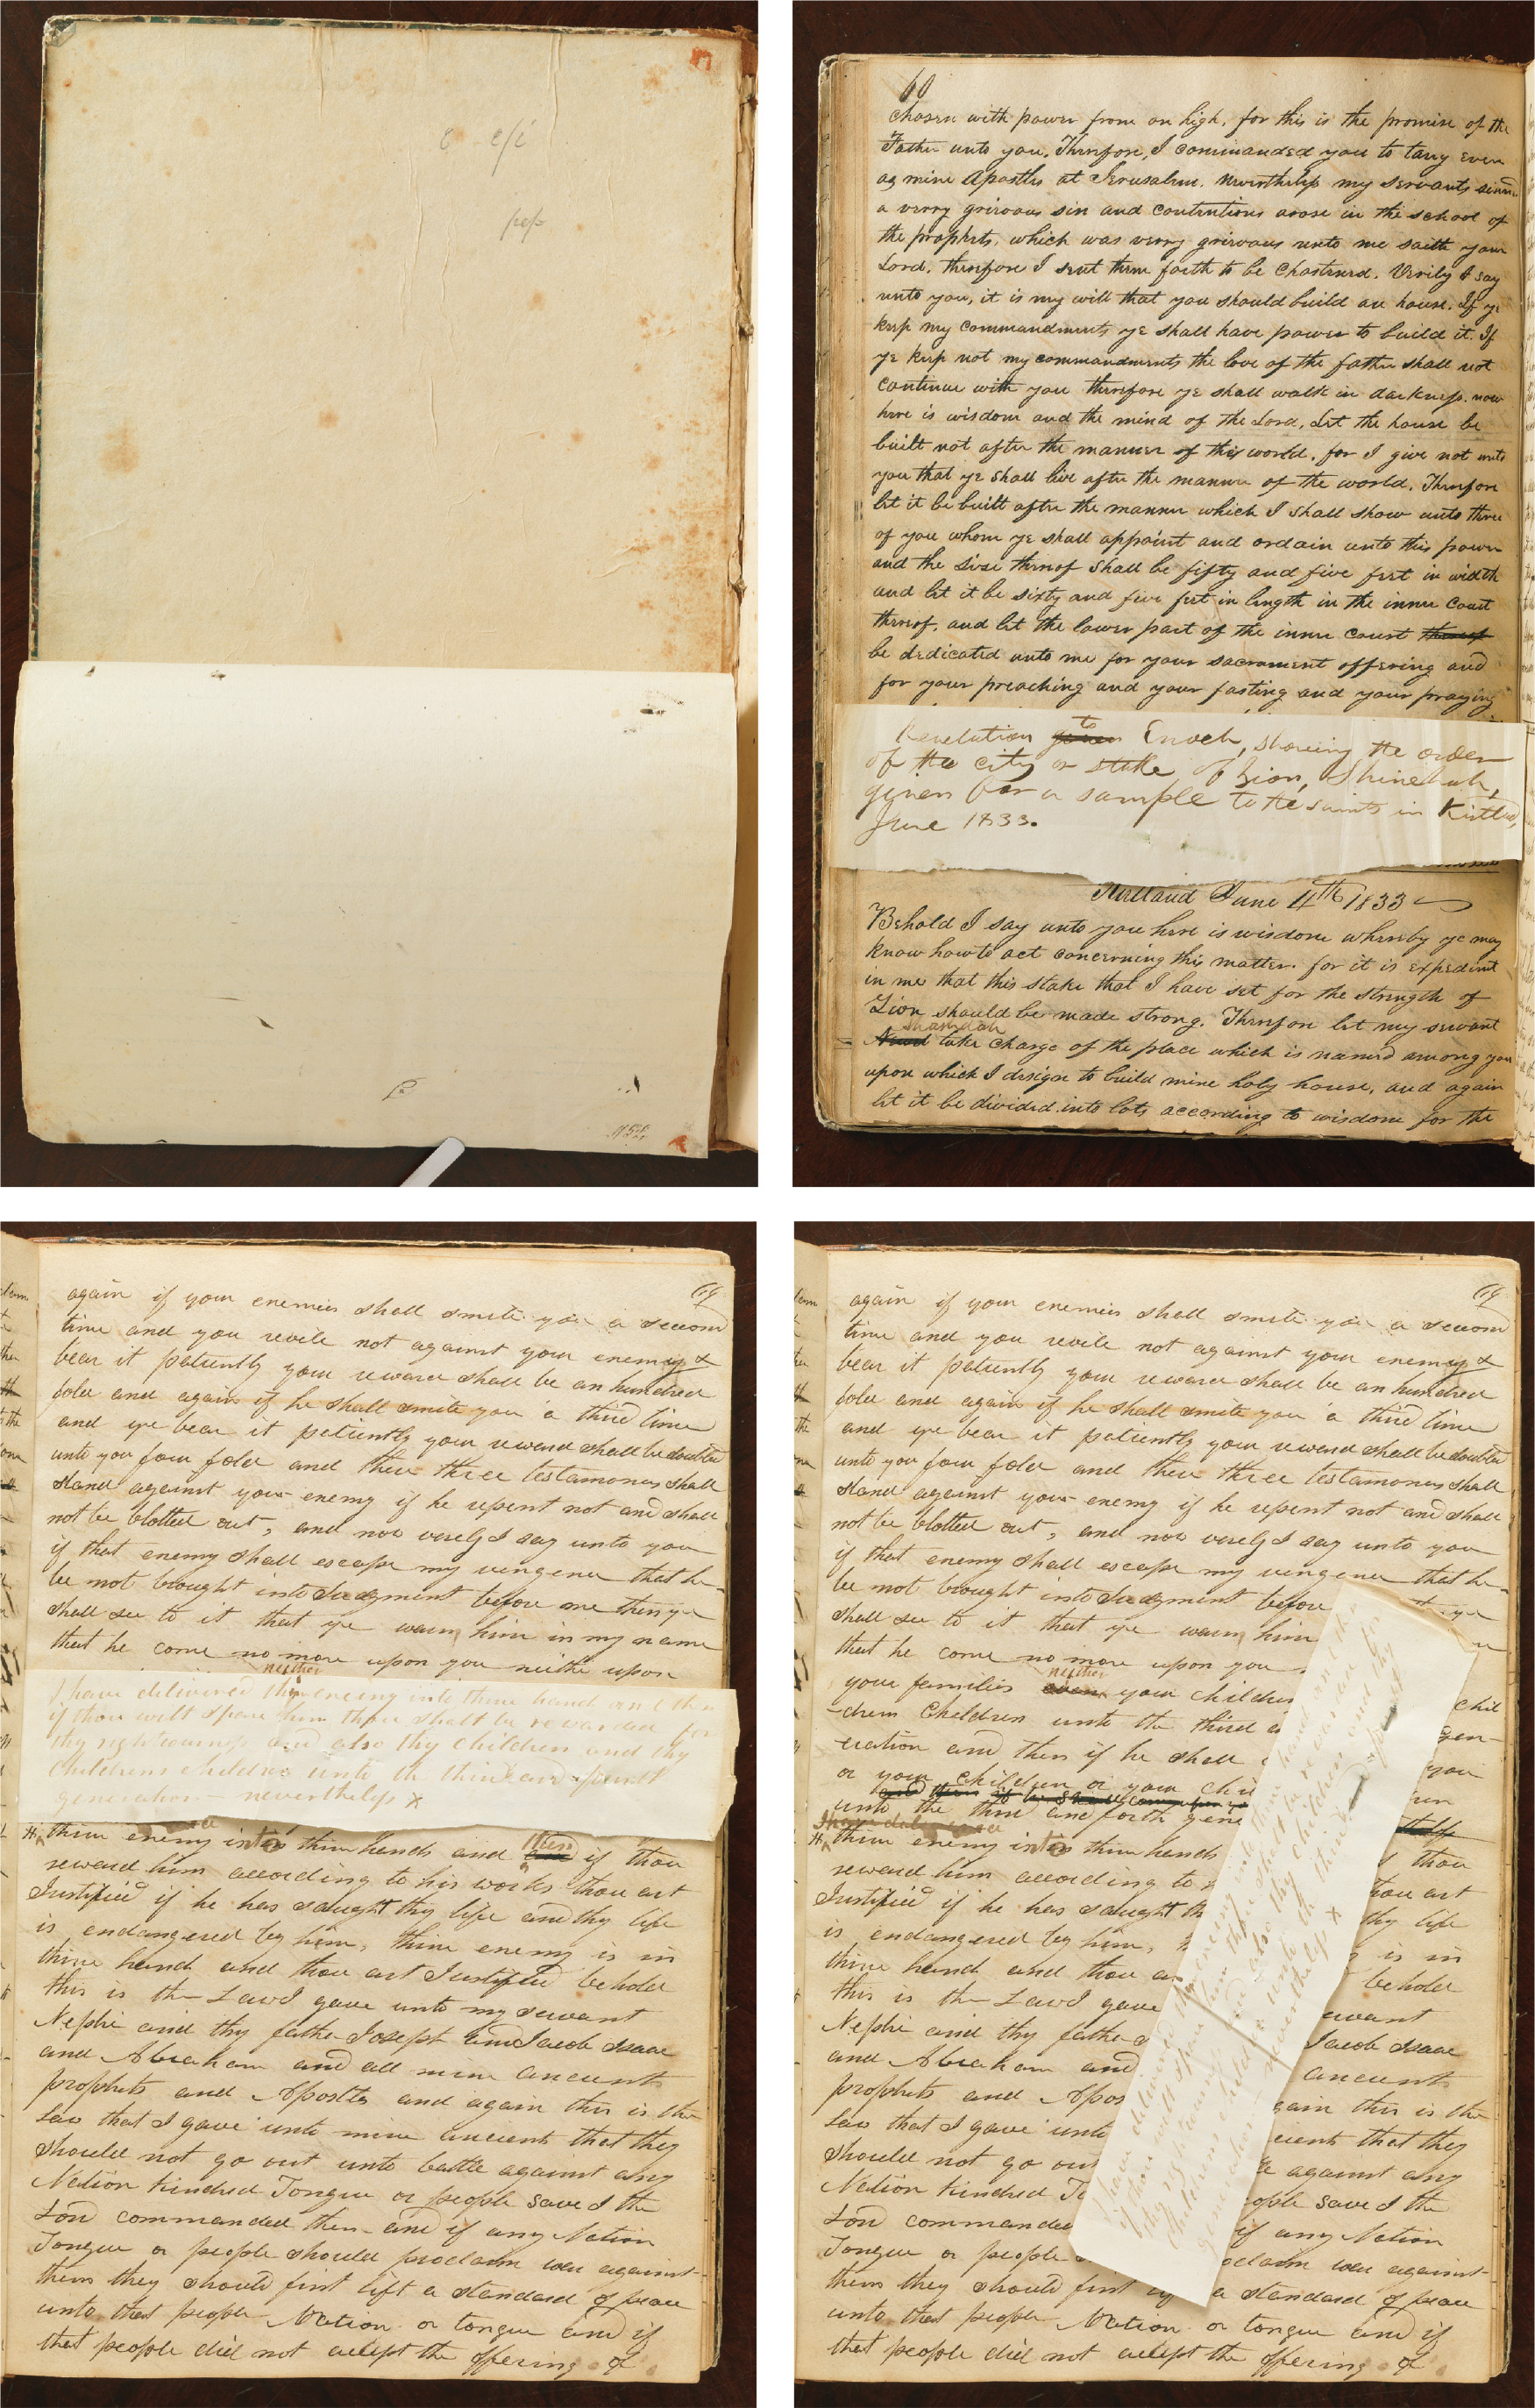 60
chosen with power from on high, for this is the promise of the
Father unto you. Therefore, I commanded you to tarry even
as mine Apostles at Jerusalem. Nevertheless my servants sinned
a verry grievous sin and contentions arose in the school of
the prophets, which was verry grievous unto me saith your
Lord, therefore I sent them forth to be chastened. Verily I say
unto you, it is my will that you should build an house. If ye
keep my commandments ye shall have power to build it. If
ye keep not my commandments the love of the father shall not
continue with you therefore ye shall walk in darkness. now
here is wisdom and the mind of the Lord, Let the house be
built not after the manner of the world, for I give not unto
you that ye shall live after the manner of the world. Therefore
let it be built after the manner which I shall show unto three
of you whom ye shall appoint and ordain unto this power
and the size thereof shall be fifty and five feet in width
and let it be sixty and five feet in length in the inner court
thereof, and let the lower part of the inner court thereof
be dedicated unto me for your sacrament offering and
for your preaching and your fasting and your praying
to
Revelation given Enoch, showing the order
of the city or stake of Zion, Shinehah,
given for a sample to the saints in Kirtland,
June 1833.
Kirtland June 4th 1833
Behold I say unto you here is wisdom whereby ye may
know how to act concerning this matter. for it is expedient
in me that this stake that I have set for the strength of
Zion should be made strong. Therefore let my servant
take charge of the place which is named among you
upon which I design to build mine holy house, and again
let it be divided into lots according to wisdom for the
again if your enemies shall smite you a second
time and you revile not against your enemy &
bear it patiently your reward shall be an hundred
fold and again if he shall smite you a third time
and ye bear it patiently your reward shall be doubled
unto you four fold and these three testamones shall
stand against your enemy if he repent not and shall
not be blotted out, and now verely I say unto you
if that enemy shall escape my vengence that he
be not brought into Judgment before me then ye
shall see to it that ye warn him in my name
that he come no more upon you neithe upon
neither
I have delivered thy enemy into thine hand and then
if thou wilt spare him thou shalt be rewarded for
thy righteousness and also thy children and thy
childrens children unto the third and fourth
generation nevertheless x
thine enemy into thine hands and then if thou
reward him according to his works thou art
Justified if he has saught thy life and thy life
is endangered by him, thine enemy is in
thine hand and thou art Justified behold
this is the Law I gave unto my servant
Nephi and thy father Joseph and Jacob Isaac
and Abraham and all mine ancients
prophets and Apostles and again this is the
Law that I gave unto mine ancients that they
should not go out unto battle against any
Nation Kindred Tongue or people save I the
Lord commanded them and if any Nation
Tongue or people should proclaim war against
them they should first lift a standard of peace
unto that people Nation or tongue and if
that people did not accept the offering of
again if your enemies shall smite you a second
time and you revile not against your enemy &
bear it patiently your reward shall be an hundred
fold and again if he shall smite you a third time
and ye bear it patiently your reward shall be doubled
unto you four fold and these three testamones shall
stand against your enemy if he repent not and shall
not be blotted out, and now verely I say unto you
if that enemy shall escape my vengence that he
be not brought into Judgment before
shall see to it that ye warn him
that he come no more upon you
neither
your families your children chil
-drens Children unto the third
eration and then if he shall
or your children or your
unto the third and forth
thine enemy into thine hands thou
reward him according to thou art
Justified if he has saught thy life
is endangered by him, is in
thine hand and thou behold
this is the Law I gave servant
Nephi and thy father Jacob Isaac
and Abraham and ancients
prophets and again this is the
Law that I gave unto that they
should not go out against any
Nation Kindred save I the
Lord commanded if any Nation
Tongue or people against
them they should first a standard of peace
unto that people Nation or tongue and if
that people did not accept the offering of